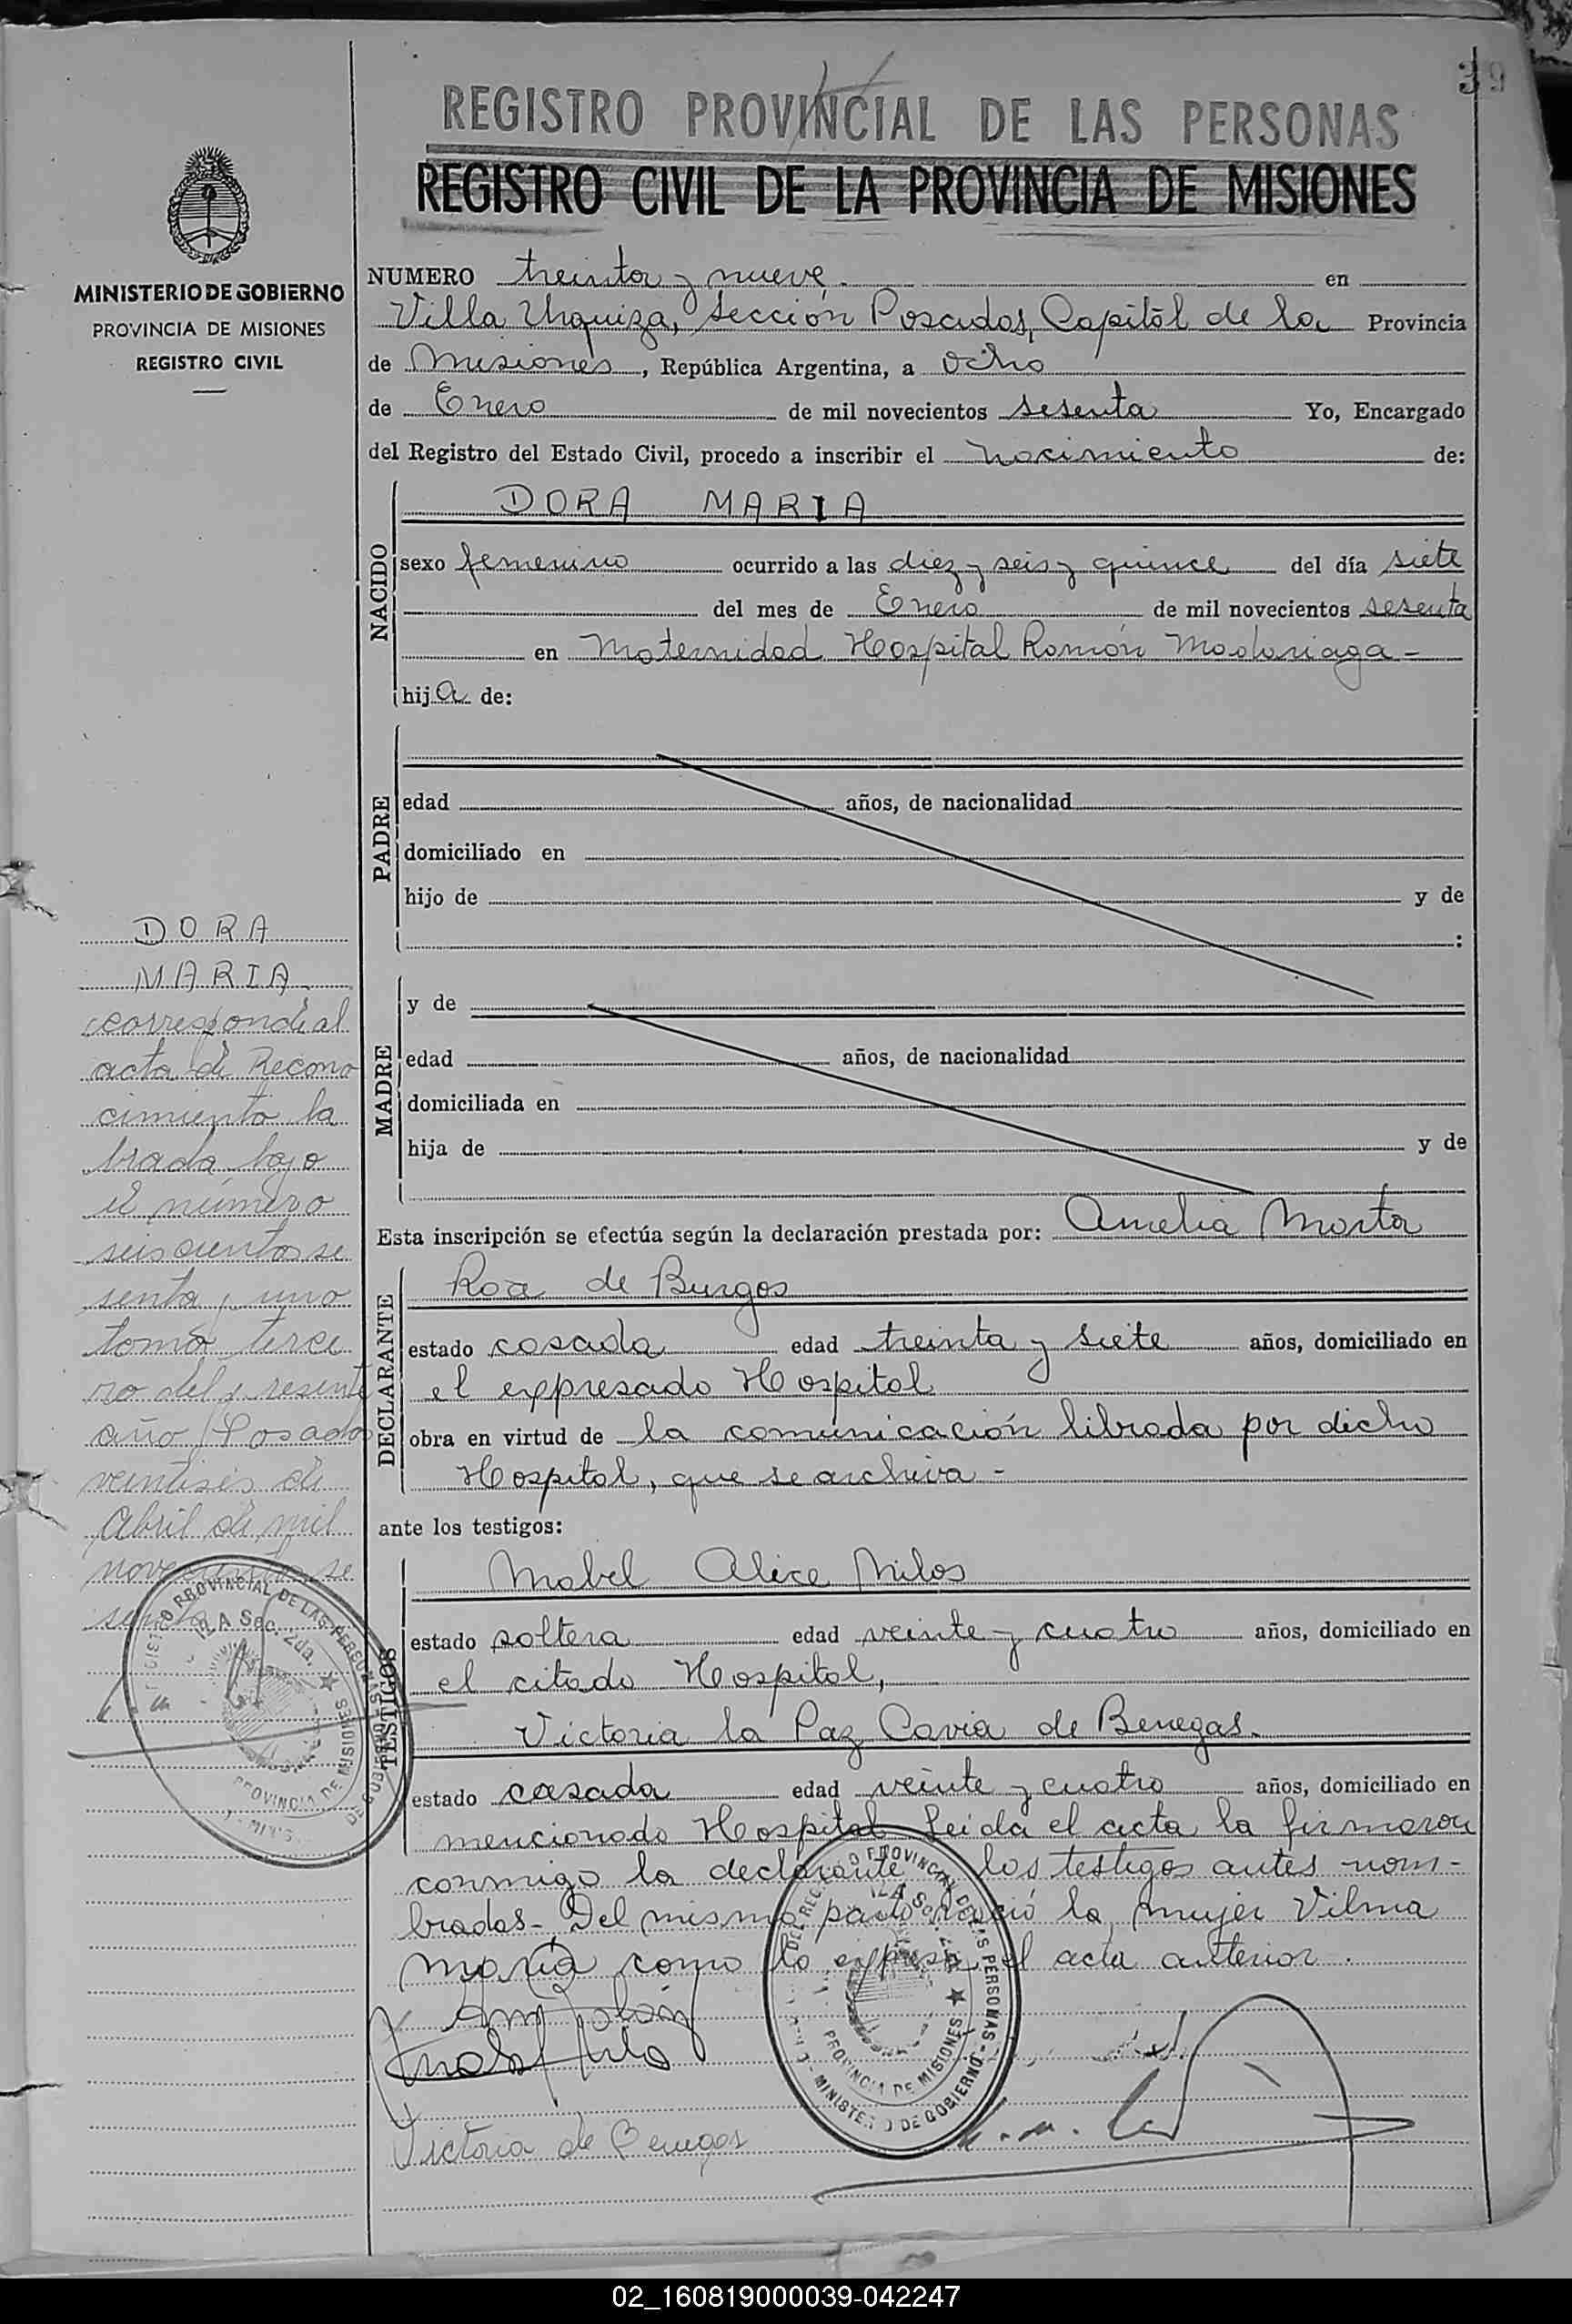 39
REGISTRO PROVINCIAL DE LAS PERSONAS
REGISTRO CIVIL DE LA PROVINCIA DE MISIONES
MINISTERIO DE GOBIERNO
PROVINCIA DE MISIONES
REGISTRO CIVIL
NUMERO treinta y nueve.- en
Villa Urquiza, Sección Posadas, Capitál de la Provincia
de Misiones, República Argentina, a ocho
de Enero de mil novecientos sesenta Yo, Encargado
del Registro del Estado Civil, procedo a inscribir el nacimiento de:
NACIDO
DORA MARIA
sexo femenino ocurrido a las diez y seis y quince del día siete
del mes de Enero de mil novecientos sesenta
en Maternidad Hospital Ramón Madariaga -
hija de:
PADRE
edad años, de nacionalidad
domiciliado en
hijo de y de
:
MADRE
y de
edad años, de nacionalidad
domiciliada en
hija de y de
Esta inscripción se efectúa según la declaración prestada por: Amelia Marta
DECLARANTE
Roa de Burgos
estado casada edad treinta y siete años, domiciliado en
el expresado Hospital
obra en virtud de la comunicación librada por dicho
Hospital, que se archiva -
ante los testigos:
TESTIGOS
Mabel Alice Milos
estado soltera edad veinte y cuatro años, domiciliado en
el citado Hospital,
Victoria la Paz Cavia de Benegas.
estado casada edad veinte y cuatro años, domiciliado en
mencionado Hospital Leida el acta la firmaron
conmigo la declarante los testigos antes nom-
bradas.- Del mismo parto nació la mujer Vilma
María como lo expresa el acta anterior.
Victoria de Benegas
DORA
MARIA.
corresponde al
acta de Recono
cimiento la
brada bajo
el número
seiscientos se
senta y uno
tomo terce
ro del presente
año Posadas
veintiseis de
Abril de mil
novecientos se
senta
REGISTRO PROVINCIAL DE LAS PERSONAS
Sec. 2da.
PROVINCIA DE MISIONES
DEL REG PROVINCIAL DE LAS PERSONAS - MINISTERIO DE GOBIERNO
PROVINCIA DE MISIONES
02_160819000039-042247